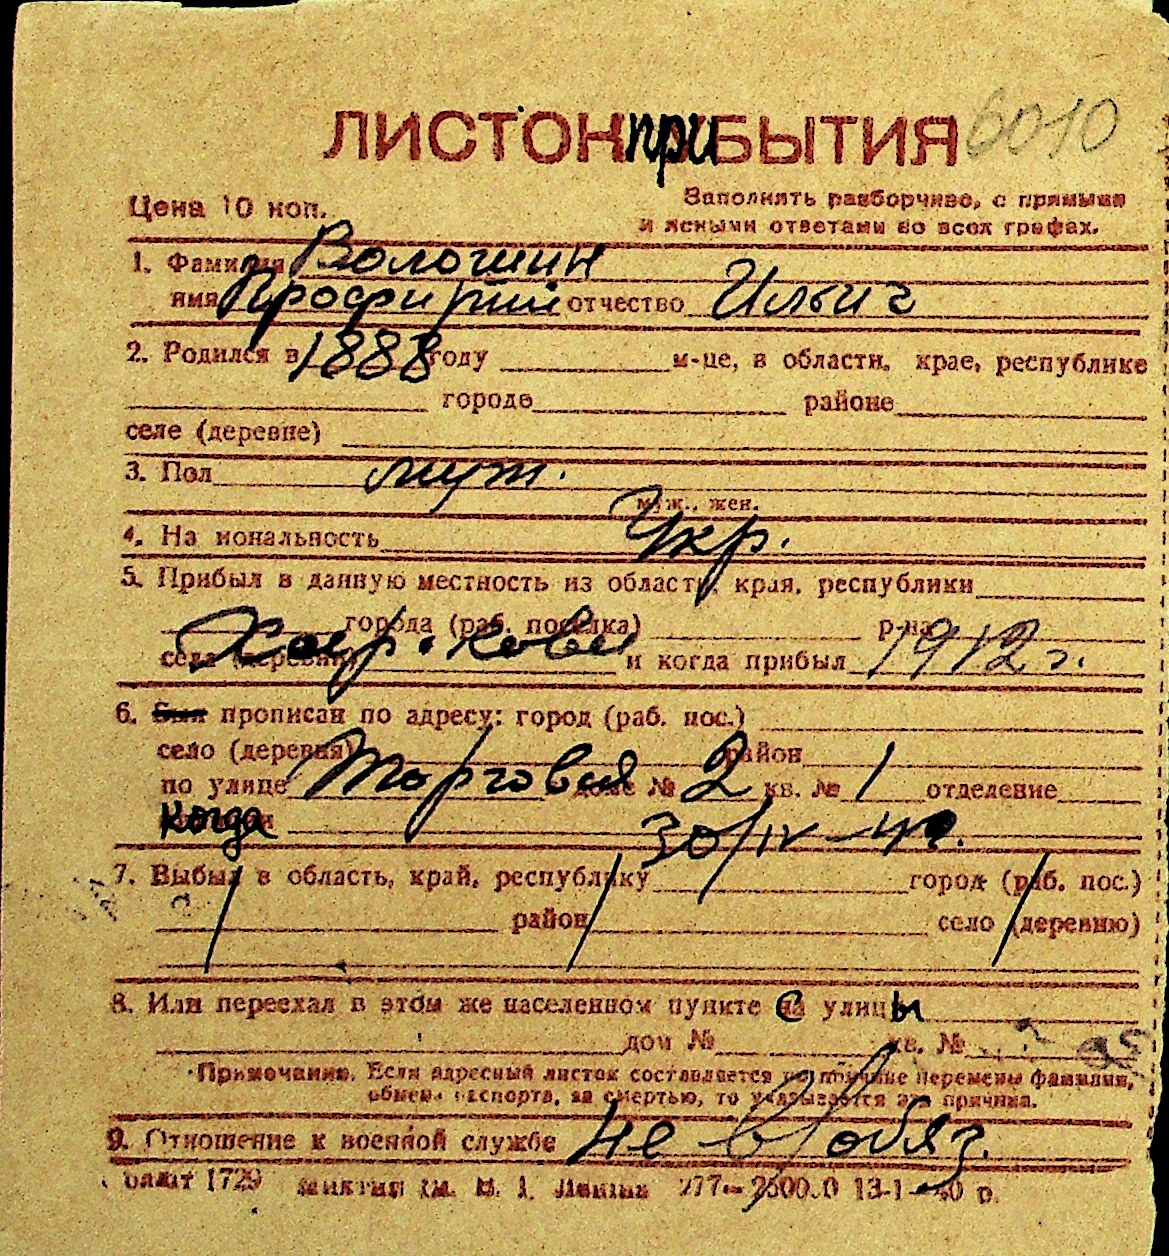 ЛИСТОК ПРИБЫТИЯ 6010
Цена 10 коп.
Заполнять разборчиво, с прямыми
и ясными ответами во всех графах.
1. Фамилия Волошин
имя Профирий отчество Ильич
2. Родился в 1888 году м-це, в области, крае, республике
городе районе
селе (деревне)
3. Пол муж.
муж., жен.
4. Национальность Укр.
5. Прибыл в данную местность из области, края, республики
города (раб. поселка) р-на
села (деревни) и когда прибыл 1912 г.
6. прописан по адресу: город (раб. пос.)
село (деревня) район
по улице Торговая доме № 2 кв. № 1 отделение
когда 30/IV-
7. Выбыл в область, край, республику город (раб. пос.)
район село (деревню)
8. Или переехал в этом же населенном пункте с улицы
дом № кв. №
Примечание. Если адресный листок составляется по причине перемены фамилии,
обмена паспорта, за смертью, то указывается эта причина.
9. Отношение к военной службе не в/обяз.
1729 им. В. И. Ленина 277— 13-1-40 р.